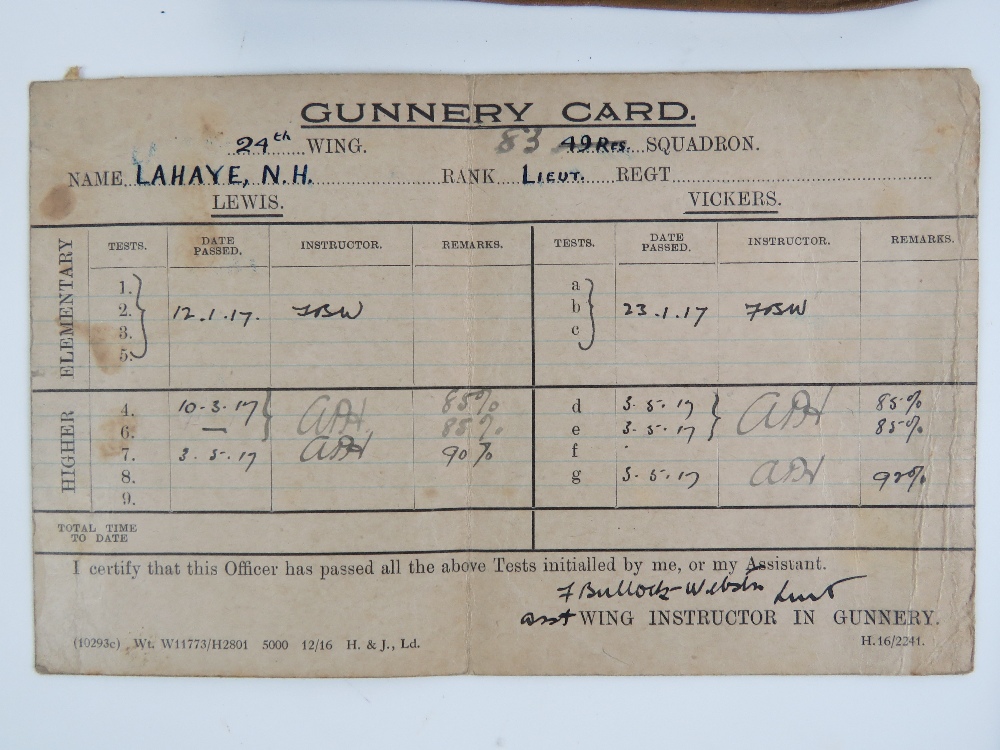 GUNNERY CARD.
24th WING. 83 49 Res. SQUADRON.
NAME LAHAYE, N.H. RANK LIEUT. REGT
LEWIS. VICKERS.
TESTS. DATE PASSED. INSTRUCTOR. REMARKS. TESTS. DATE PASSED. INSTRUCTOR. REMARKS.
ELEMENTARY
1. a
2. 12.1.17. FBW b 23.1.17 FBW
3. c
5.
HIGHER
4. 10-3-17 85% d 3.5.17 85%
6. — 85% e 3.5.17 85%
7. 3.5.17 90% f
8. g 3.5.17
9.
TOTAL TIME TO DATE
I certify that this Officer has passed all the above Tests initialled by me, or my Assistant.
F Bullock-Webster Lieut
asst WING INSTRUCTOR IN GUNNERY.
(10293c) Wt. W11773/H2801 5000 12/16 H. & J., Ld. H.16/2241.